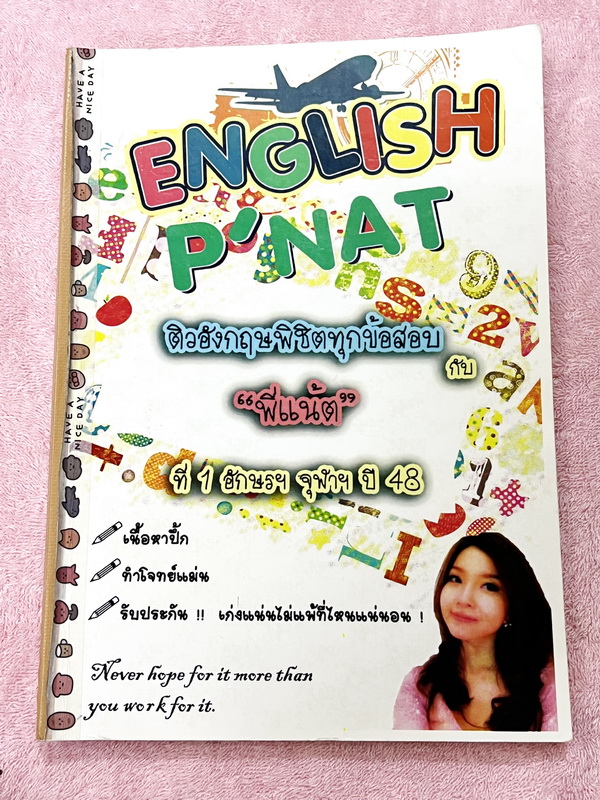 HAVE A
NICE DAY
ENGLISH
P'NAT
ติวอังกฤษพิชิตทุกข้อสอบ
กับ
“พี่แน้ต”
ที่ 1 อักษรฯ จุฬาฯ ปี 48
เนื้อหาปึ้ก
ทำโจทย์แม่น
รับประกัน !! เก่งแน่นไม่แพ้ที่ไหนแน่นอน !
HAVE A
NICE DAY
Never hope for it more than
you work for it.